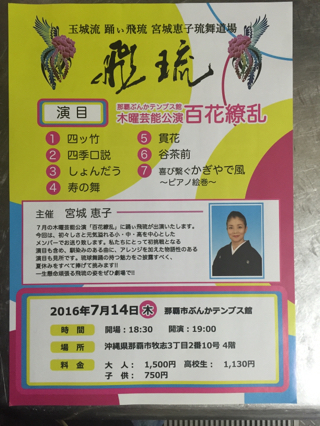 玉城流 踊ぃ飛琉 宮城恵子琉舞道場
彫琉
演目
那覇ぶんかテンブス館
木曜芸能公演 百花繚乱
1 四ッ竹
2 四季口説
3 しょんだう
4 寿の舞
5 貫花
6 谷茶前
7 喜び繋ぐかぎやで風
～ピアノ絵巻～
主催 宮城 恵子
7月の木曜芸能公演「百花繚乱」に踊ぃ飛琉が出演いたします。
今回は、初々しさと元気溢れる小・中・高を中心とした
メンバーでお送り致します。私たちにとって初挑戦となる
演目も含め、馴染みのある曲に、アレンジを加えた物語性のある
演目も見所です。琉球舞踊の持つ魅力をご披露すべく、
夏休みをすべて捧げて挑みます!!
一生懸命頑張る飛琉の姿をぜひ劇場で!!
2016年7月14日 木 那覇市ぶんかテンブス館
時間 開場：18:30 開演：19:00
場所 沖縄県那覇市牧志3丁目2番10号 4階
料金 大人：1,500円 高校生：1,130円
子供：750円